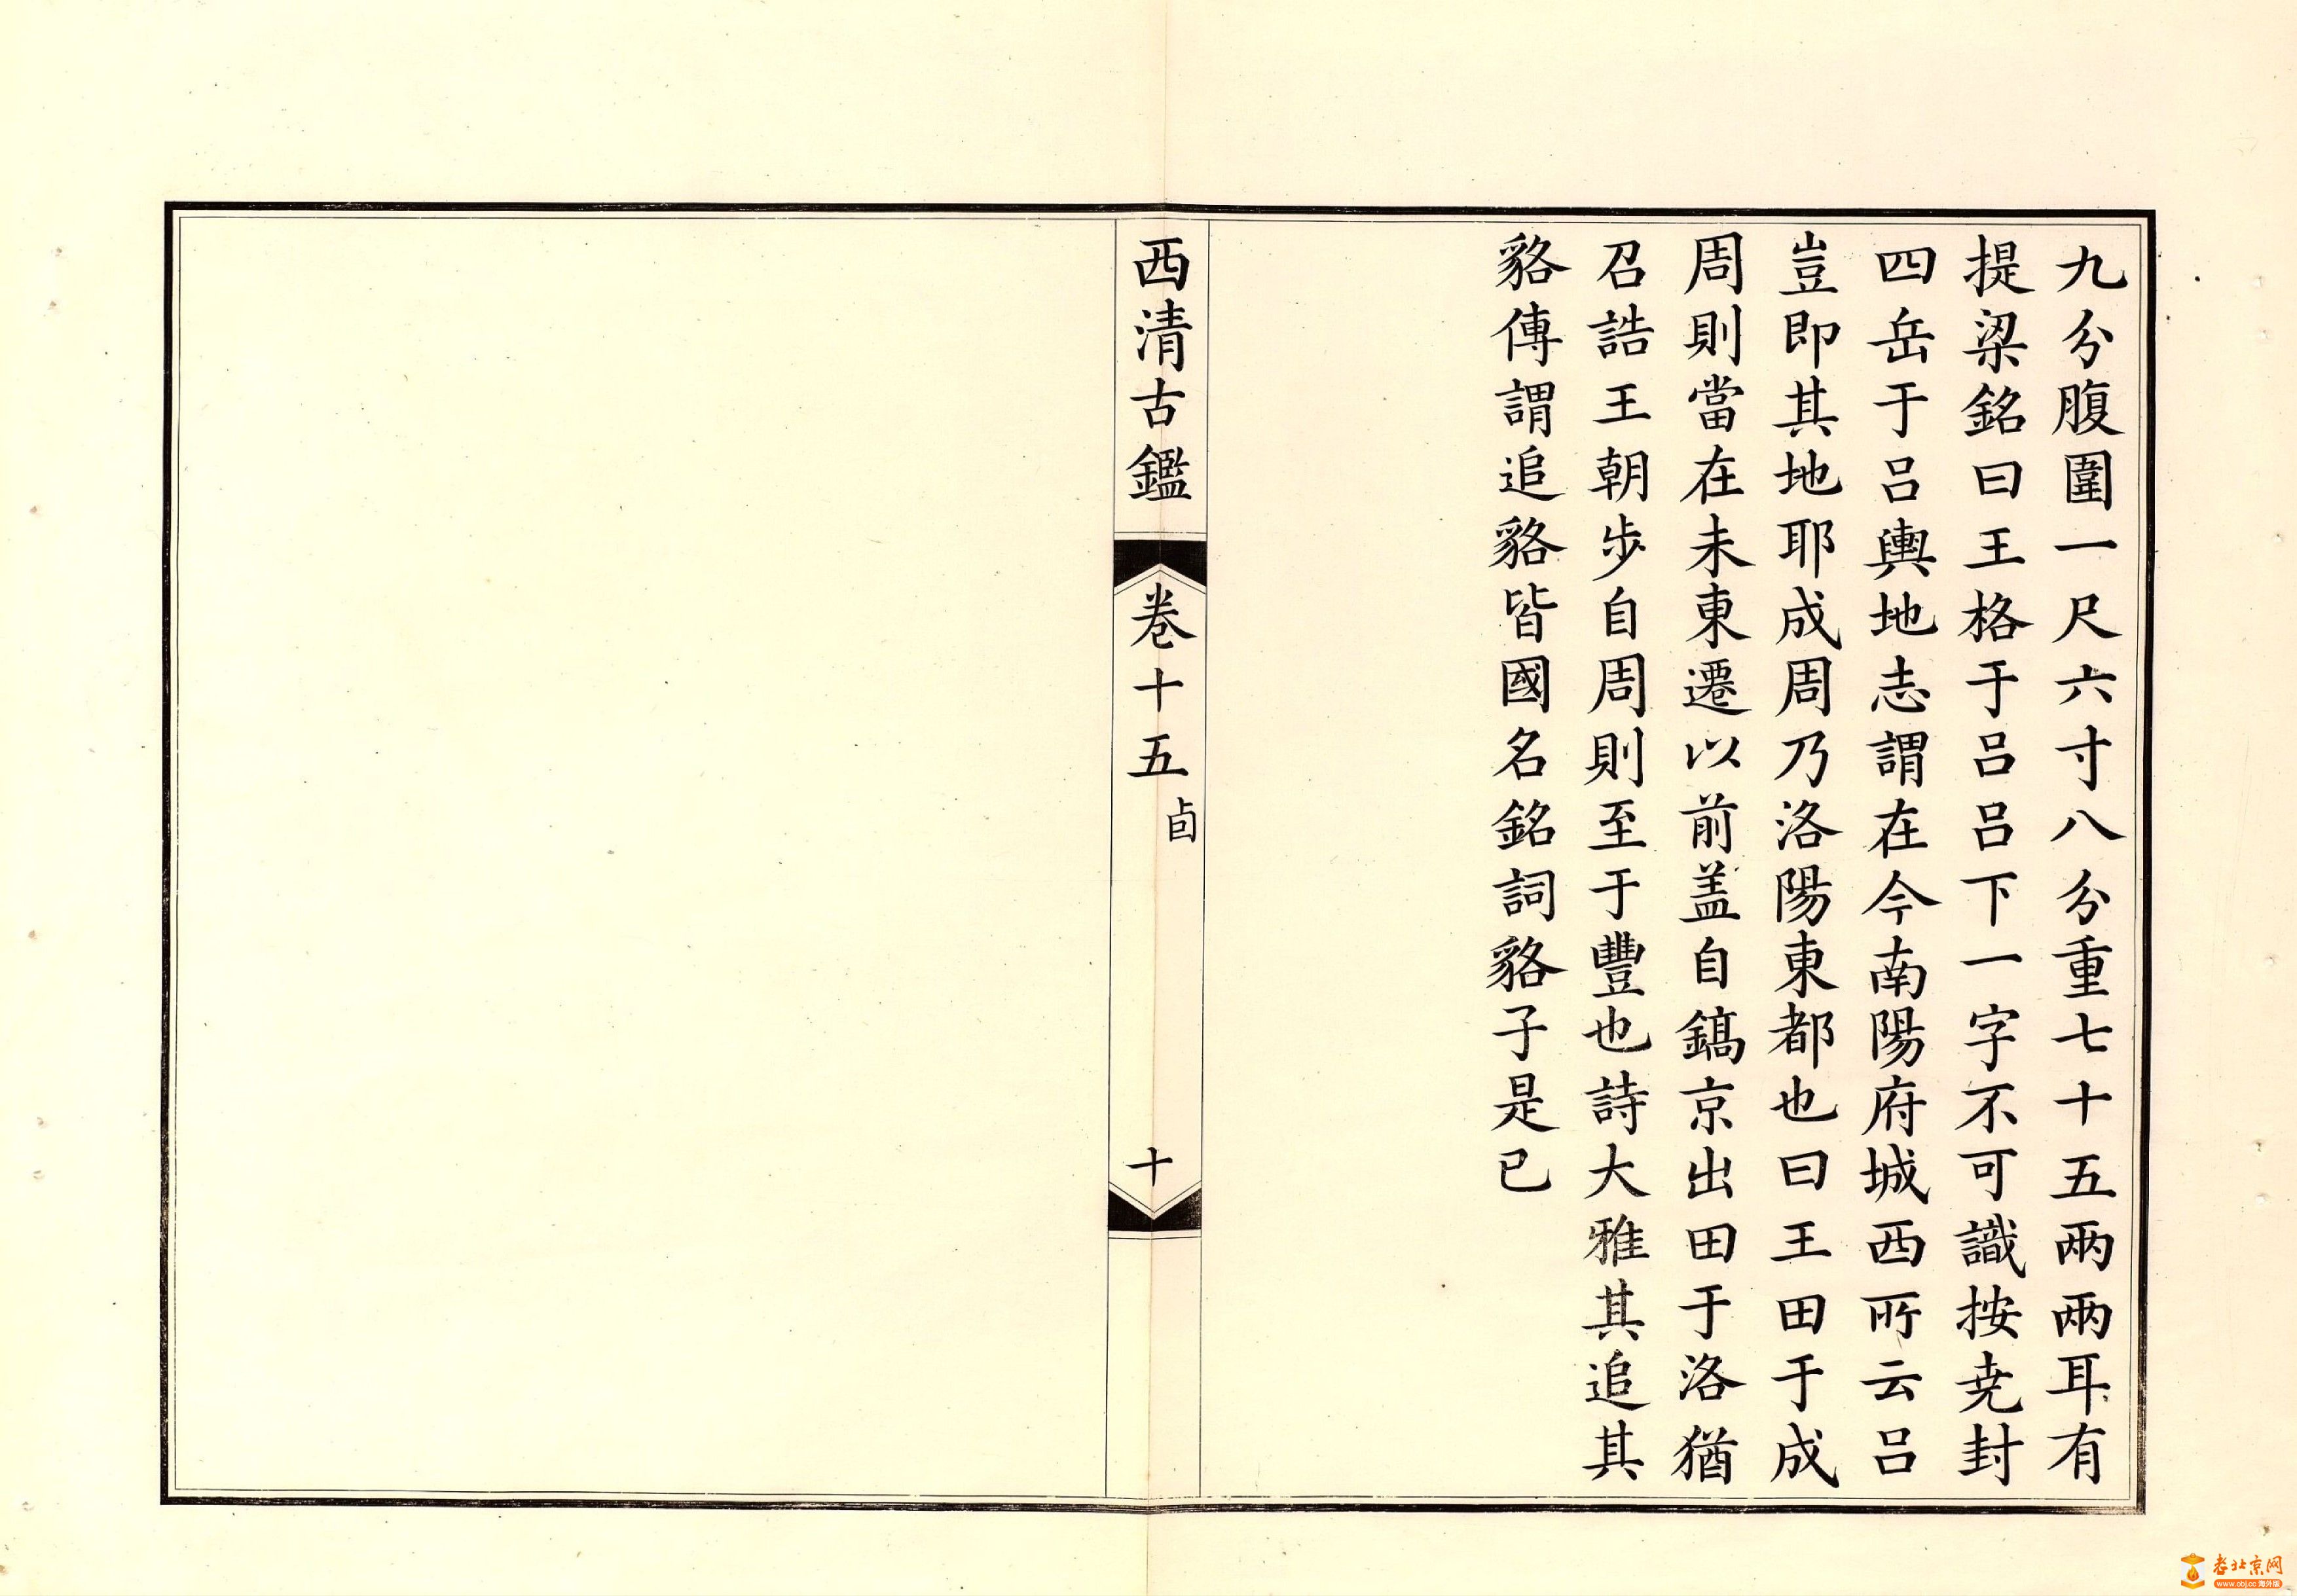 九分腹圍一尺六寸八分重七十五兩兩耳有
提梁銘曰王格于呂呂下一字不可識按尭封
四岳于呂輿地志謂在今南陽府城西所云呂
豈即其地耶成周乃洛陽東都也曰王田于成
周則當在未東遷以前盖自鎬京出田于洛猶
召誥王朝步自周則至于豐也詩大雅其追其
貉傳謂追貉皆國名銘詞貉子是已
西清古鑑
卷十五
卣
十
老北京网
www.obj.cc 海外版